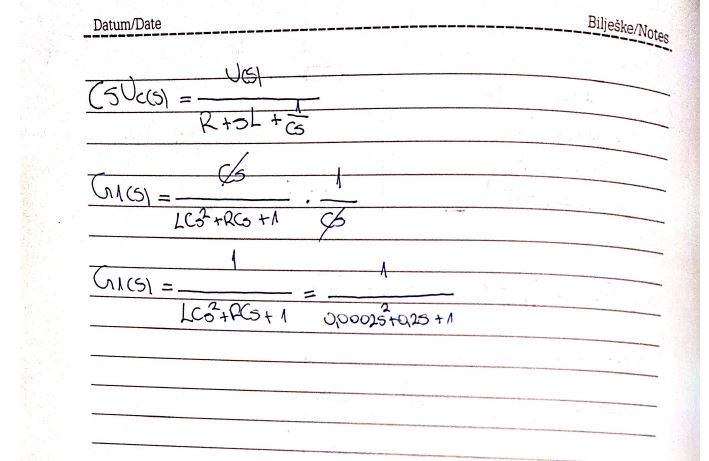 Datum/Date Bilješke/Notes
CsUc(s) = U(s) / (R + sL + 1/Cs)
G1(s) = Cs / (LCs² + RCs + 1) · 1/Cs
G1(s) = 1 / (LCs² + RCs + 1) = 1 / (0,0002s² + 0,2s + 1)